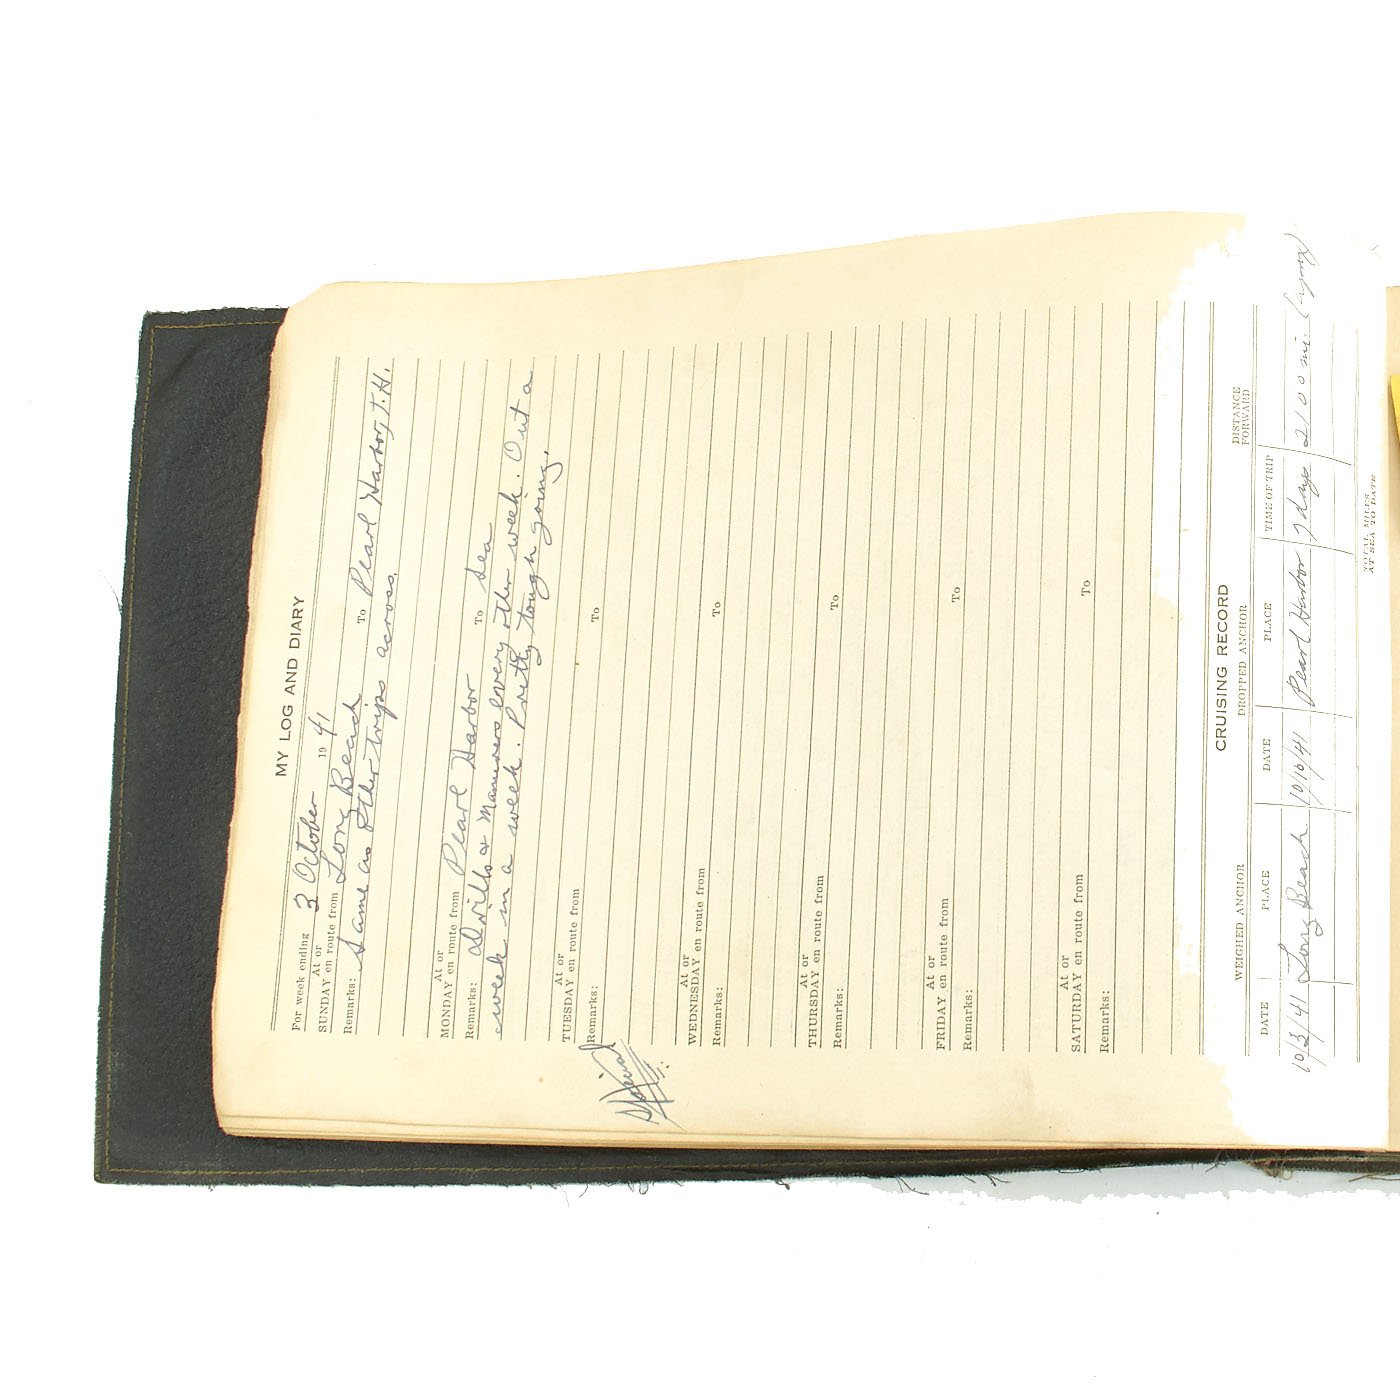 MY LOG AND DIARY
For week ending 3 October 19 41
At or
SUNDAY en route from Long Beach To Pearl Harbor, T.H.
Remarks: Same as other trips across.
At or
MONDAY en route from Pearl Harbor To Sea
Remarks: Drills & Manuvers every other week. Out a
week in a week. Pretty tough going.
At or
TUESDAY en route from To
Remarks:
At or
WEDNESDAY en route from To
Remarks:
At or
THURSDAY en route from To
Remarks:
At or
FRIDAY en route from To
Remarks:
At or
SATURDAY en route from To
Remarks:
CRUISING RECORD
WEIGHED ANCHOR DROPPED ANCHOR DISTANCE FORWARD
DATE PLACE DATE PLACE TIME OF TRIP
10/3/41 Long Beach 10/10/41 Pearl Harbor 7 days 2100 mi.
TOTAL MILES
AT SEA TO DATE